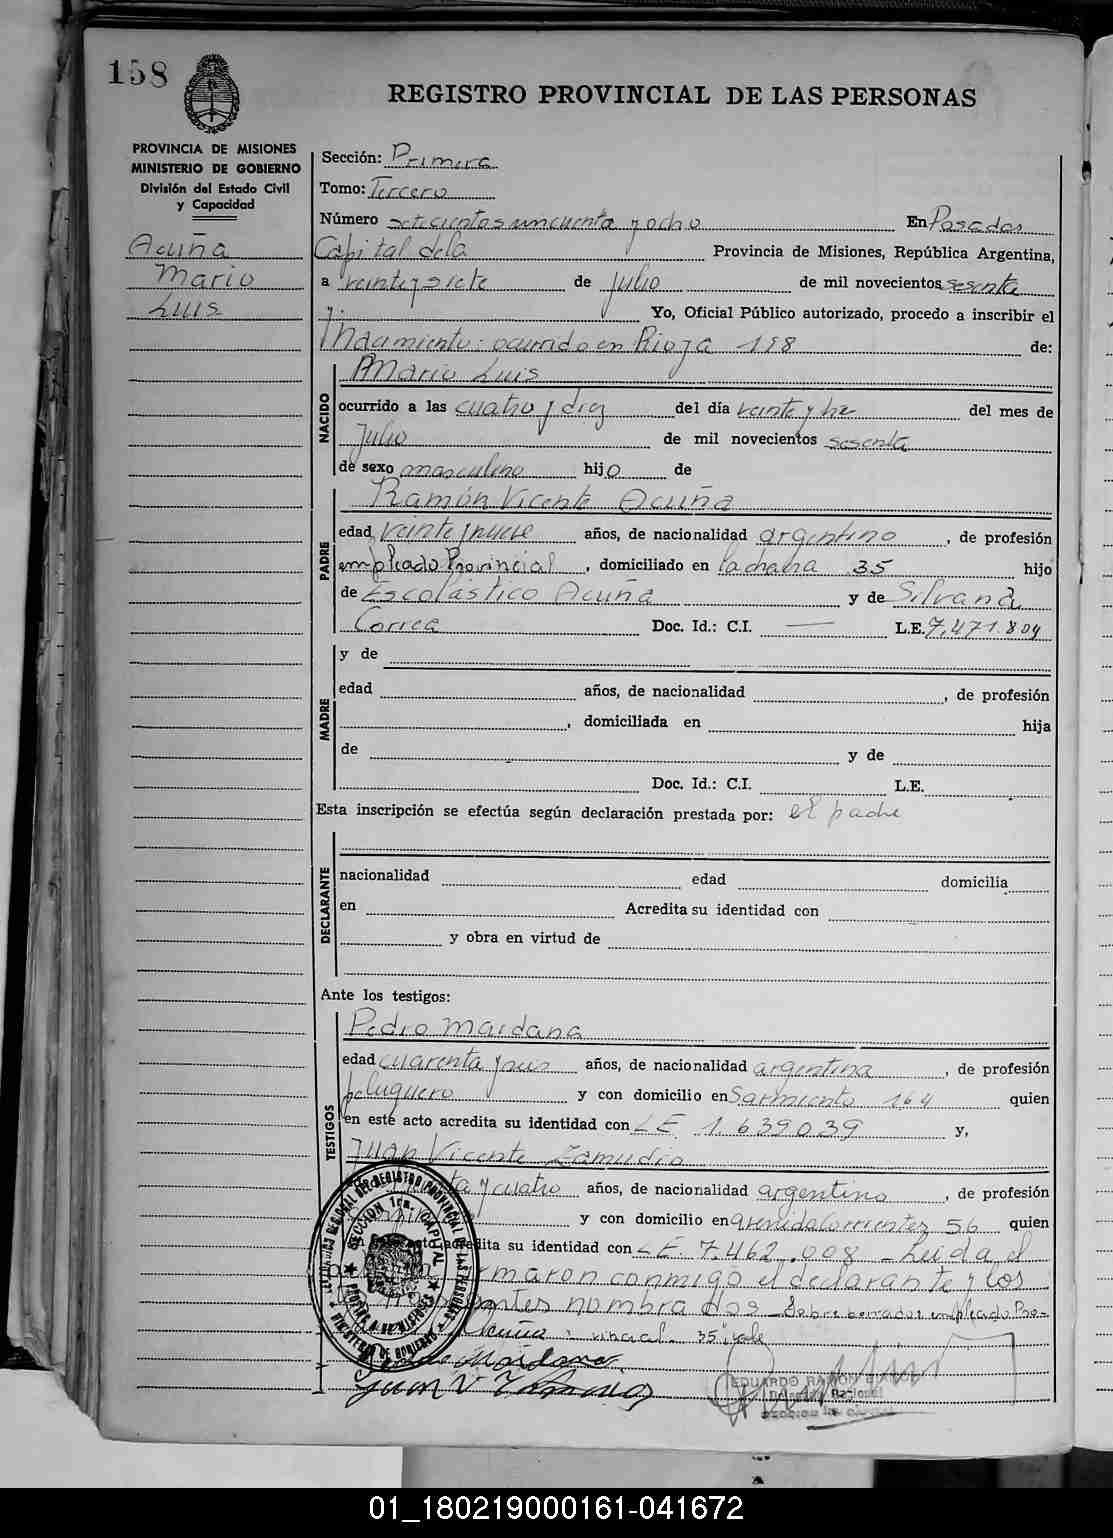 158
REGISTRO PROVINCIAL DE LAS PERSONAS
PROVINCIA DE MISIONES
MINISTERIO DE GOBIERNO
División del Estado Civil
y Capacidad
Acuña
Mario
Luis
Sección: Primera
Tomo: Tercero
Número setecientos cincuenta y ocho En Posadas
Capital dela Provincia de Misiones, República Argentina,
a veinte y siete de julio de mil novecientos sesenta
Yo, Oficial Público autorizado, procedo a inscribir el
Nacimiento: ocurrido en Rioja 198 de:
NACIDO
Mario Luis
ocurrido a las cuatro y diez del día veinte y del mes de
Julio de mil novecientos sesenta
de sexo masculino hijo de
PADRE
Ramón Vicente Acuña
edad veinte y nueve años, de nacionalidad argentino, de profesión
empleado Provincial, domiciliado en la chacra 35 hijo
de Escolástico Acuña y de Silvana
Correa Doc. Id.: C.I. — L.E. 7.471.804
MADRE
y de
edad años, de nacionalidad , de profesión
, domiciliada en hija
de y de
Doc. Id.: C.I. L.E.
Esta inscripción se efectúa según declaración prestada por: el padre
DECLARANTE
nacionalidad edad domicilia
en Acredita su identidad con
y obra en virtud de
Ante los testigos:
TESTIGOS
Pedro Maidana
edad cuarenta y seis años, de nacionalidad argentina, de profesión
peluquero y con domicilio en Sarmiento 164 quien
en este acto acredita su identidad con LE 1.639039 y,
Juan Vicente Zamudio
ta y cuatro años, de nacionalidad argentino, de profesión
y con domicilio en avenida Corrientes 56 quien
acto acredita su identidad con LE. 7.462.008 - Leida el
firmaron conmigo el declarante y los
nombrados - Sobre borrado: empleado Pro-
Acuña: vincial - 35" vale
Maidana
Juan V Zamudio
EDUARDO RAMÓN
SECCION 1ra. CAPITAL
PROVINCIA DE MISIONES
MINISTERIO DE GOBIERNO
01_180219000161-041672